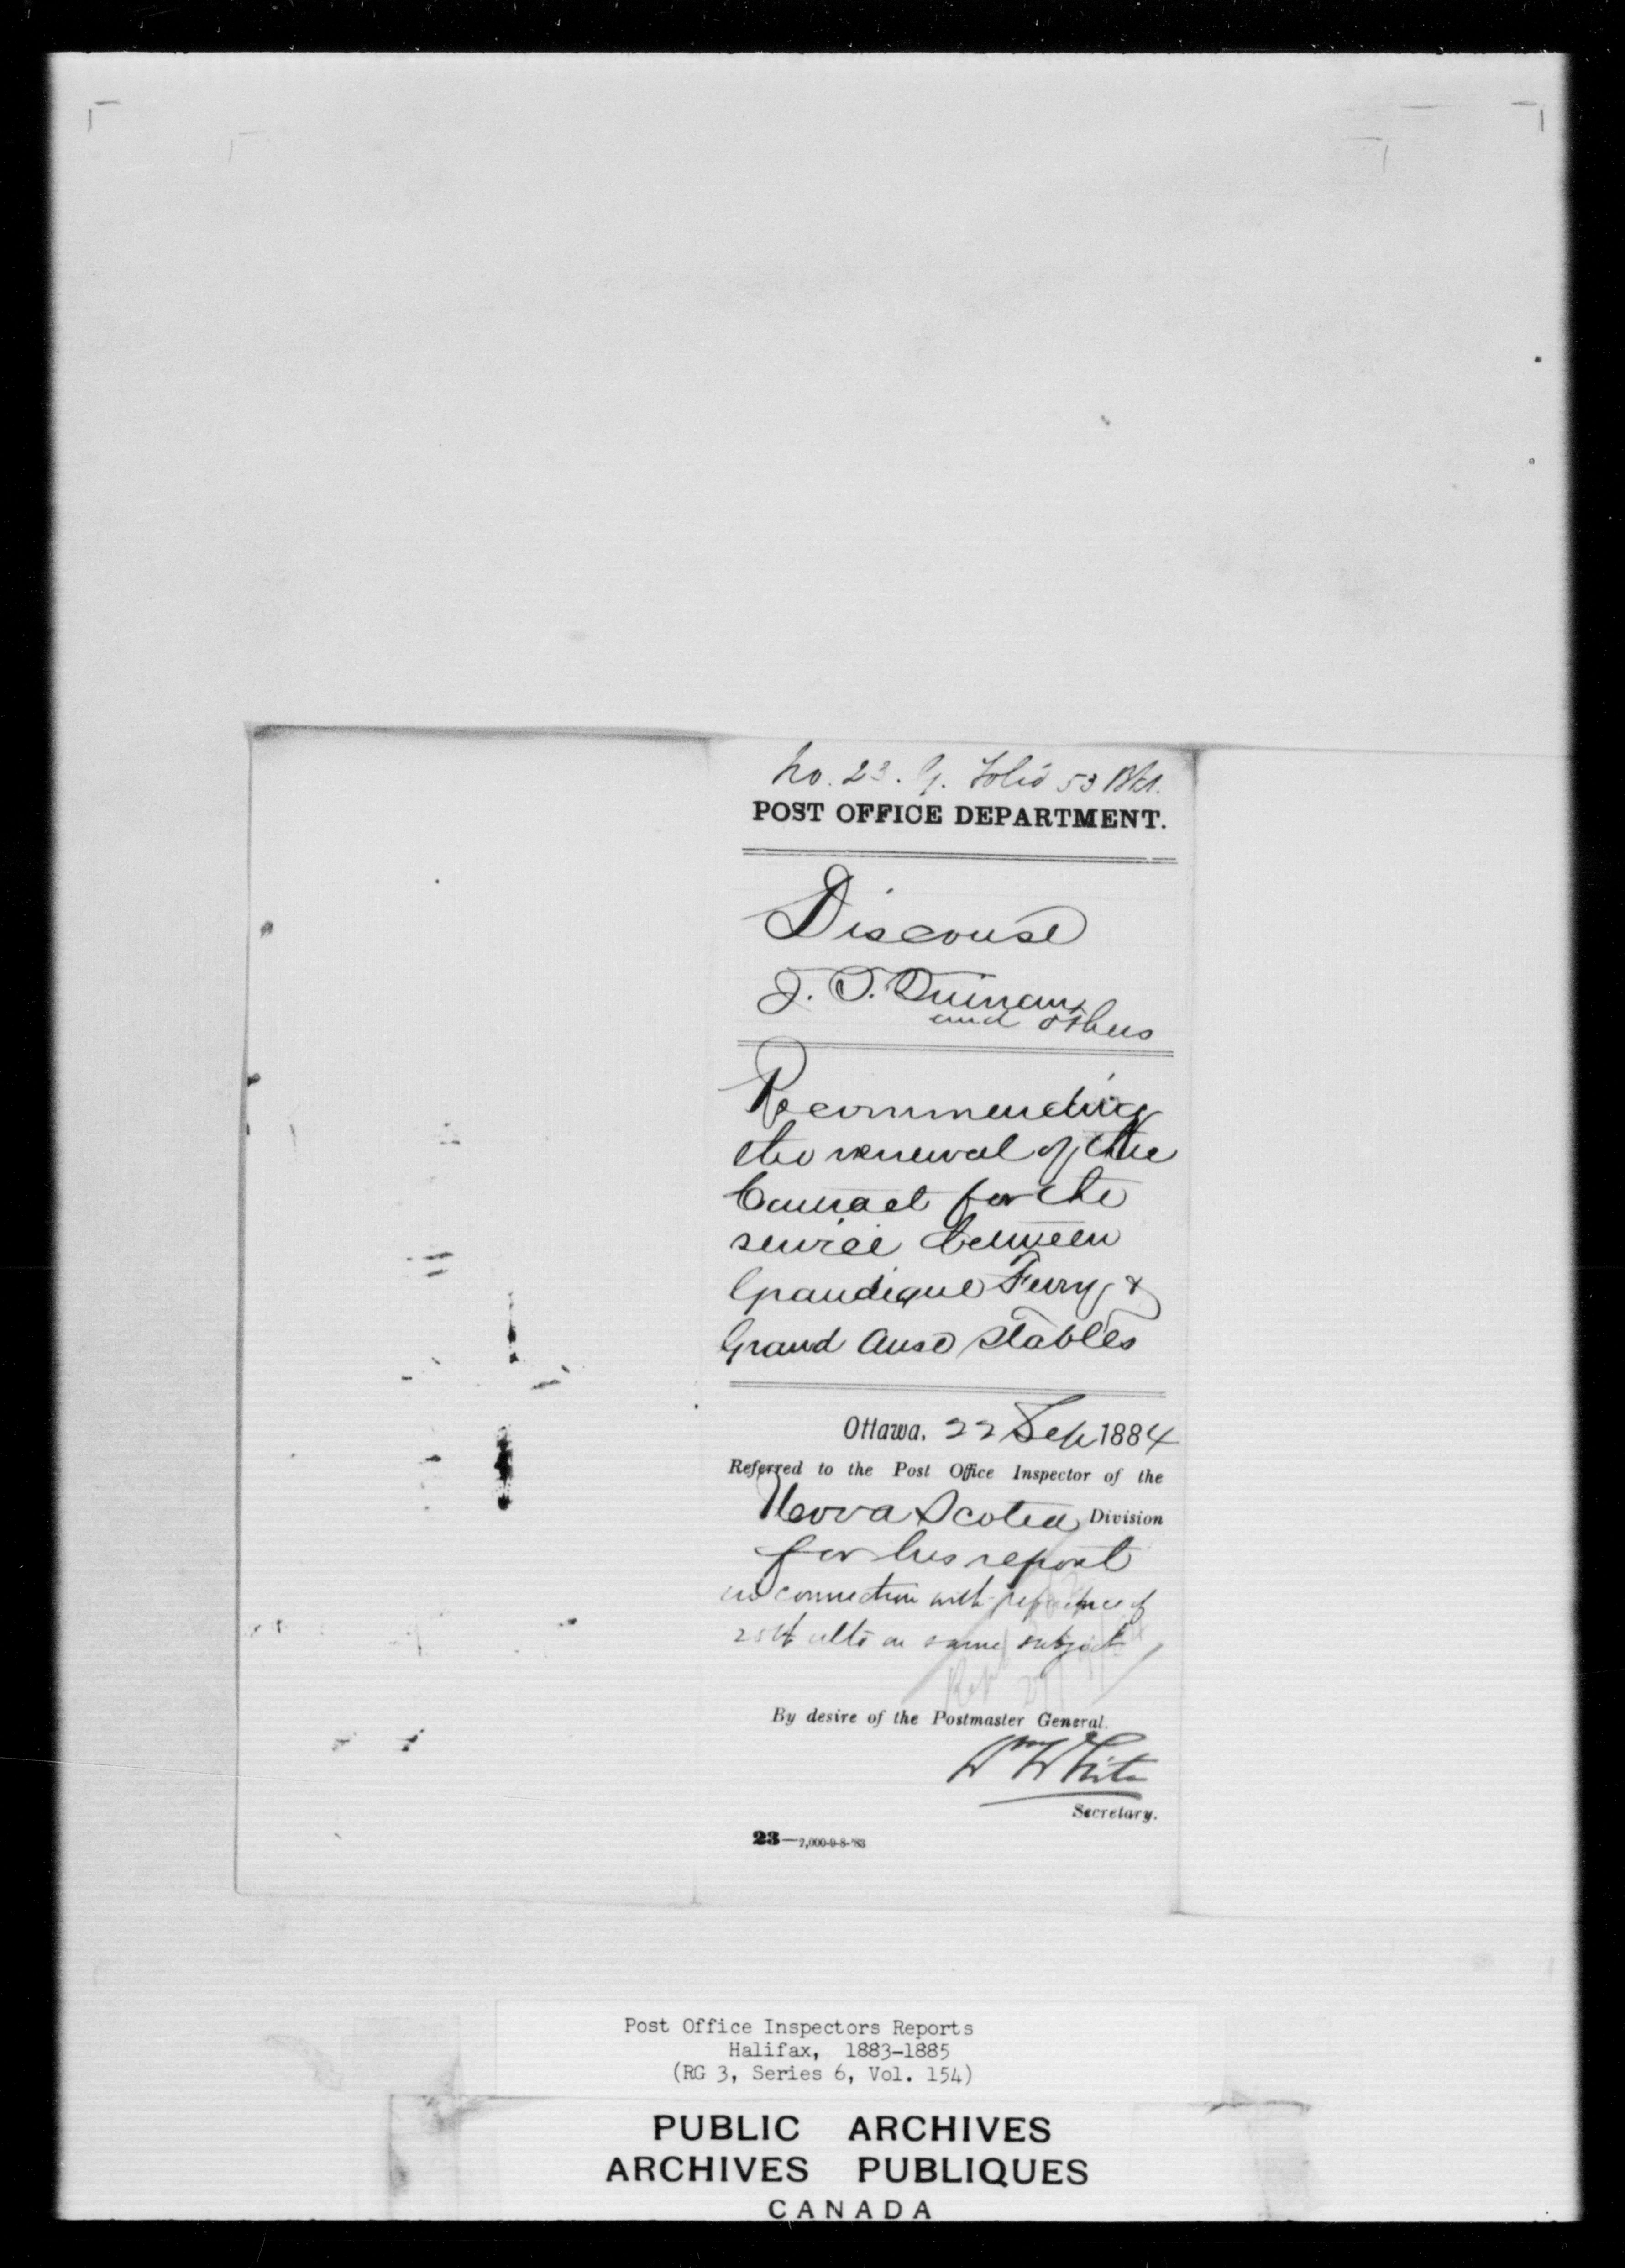 No. 23. G. Folio 53
POST OFFICE DEPARTMENT.
Discouse
J. T. Quinan
and others
Recommending
the renewal of the
Contract for the
service between
Grandique Ferry &
Grand Anse Stables
Ottawa. 22 Sep 1884
Referred to the Post Office Inspector of the
Nova Scotia Division
for his report
in connection with reference of
25th ulto on same subject
By desire of the Postmaster General.
Wm White
Secretary.
23—2,000-9-8-'83
Post Office Inspectors Reports
Halifax, 1883-1885
(RG 3, Series 6, Vol. 154)
PUBLIC ARCHIVES
ARCHIVES PUBLIQUES
CANADA